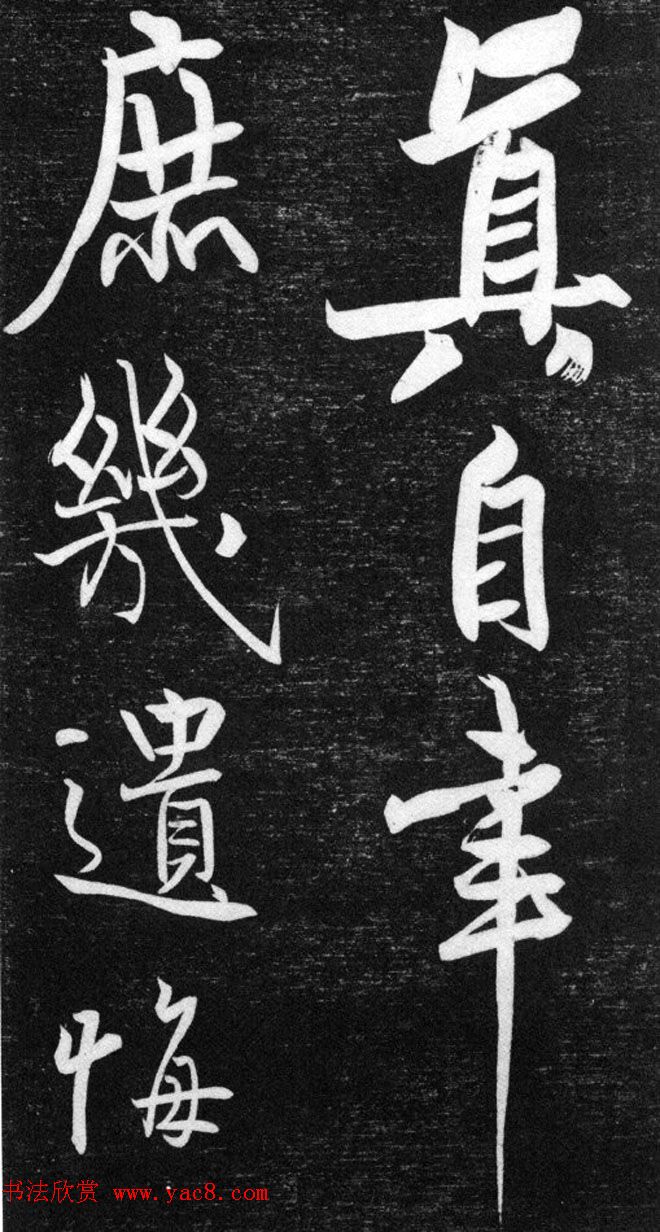 眞自幸
庶幾遺悔
书法欣赏 www.yac8.com